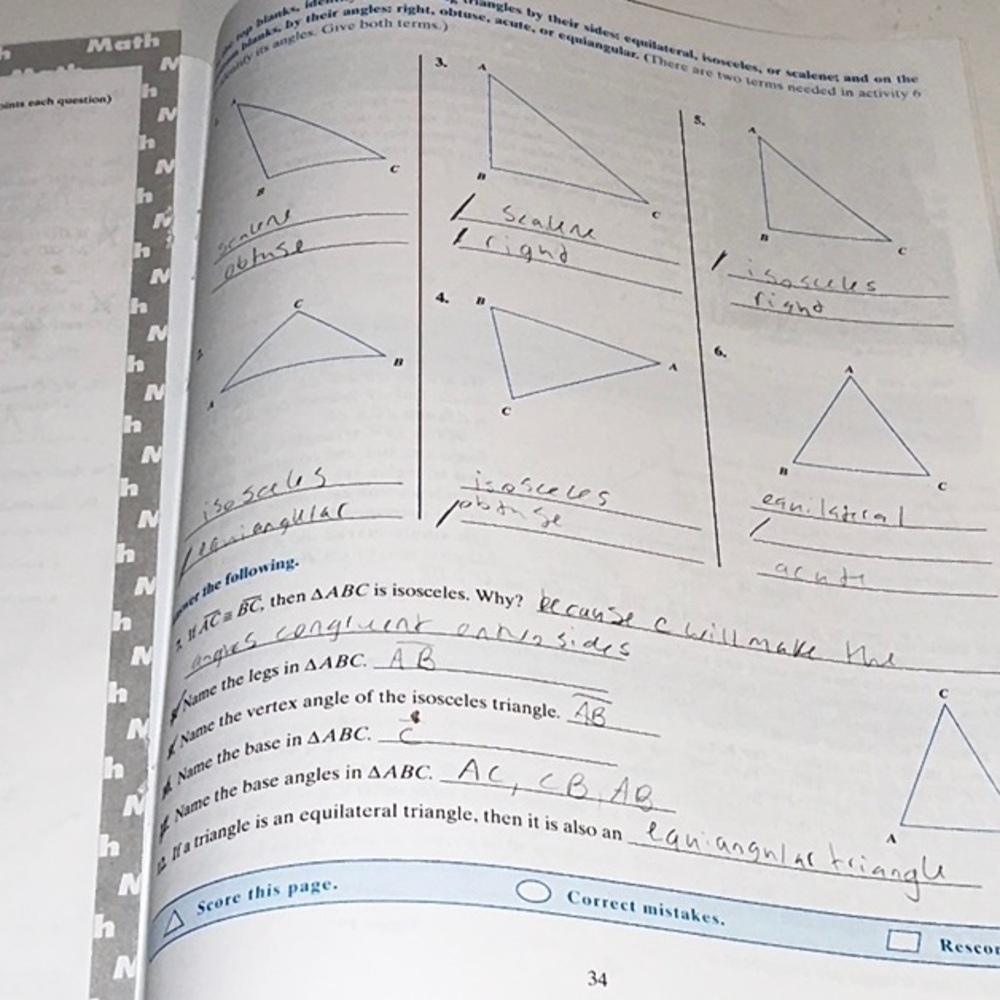 Math
points each question)
top blanks, triangles by their sides: equilateral, isosceles, or scalene; and on the
blanks, by their angles: right, obtuse, acute, or equiangular. (There are two terms needed in activity 6
its angles. Give both terms.)
A
B
C
scalene
obtuse
C
B
A
isosceles
equiangular
3.
A
B
C
scalene
right
4.
B
A
C
isosceles
obtuse
5.
A
B
C
isosceles
right
6.
A
B
C
equilateral
acute
the following.
7. If AC ≅ BC, then ΔABC is isosceles. Why? because C will make the
angles congruent sides
Name the legs in ΔABC. AB
Name the vertex angle of the isosceles triangle. AB
Name the base in ΔABC. C
Name the base angles in ΔABC. AC, CB, AB
12. If a triangle is an equilateral triangle, then it is also an equiangular triangle
C
A
Score this page.
Correct mistakes.
Rescor
34